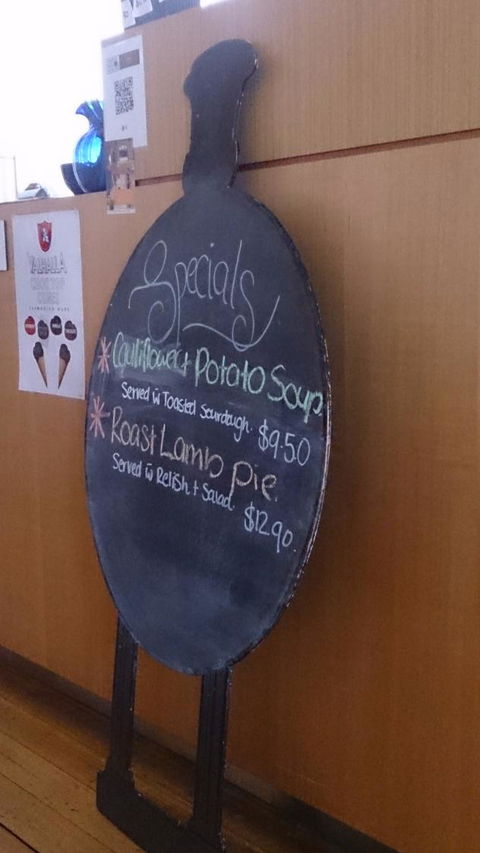 VALHALLA
Specials
* Cauliflower + Potato Soup
Served w Toasted Sourdough. $9.50
* Roast Lamb Pie.
Served w Relish + Salad. $12.90.